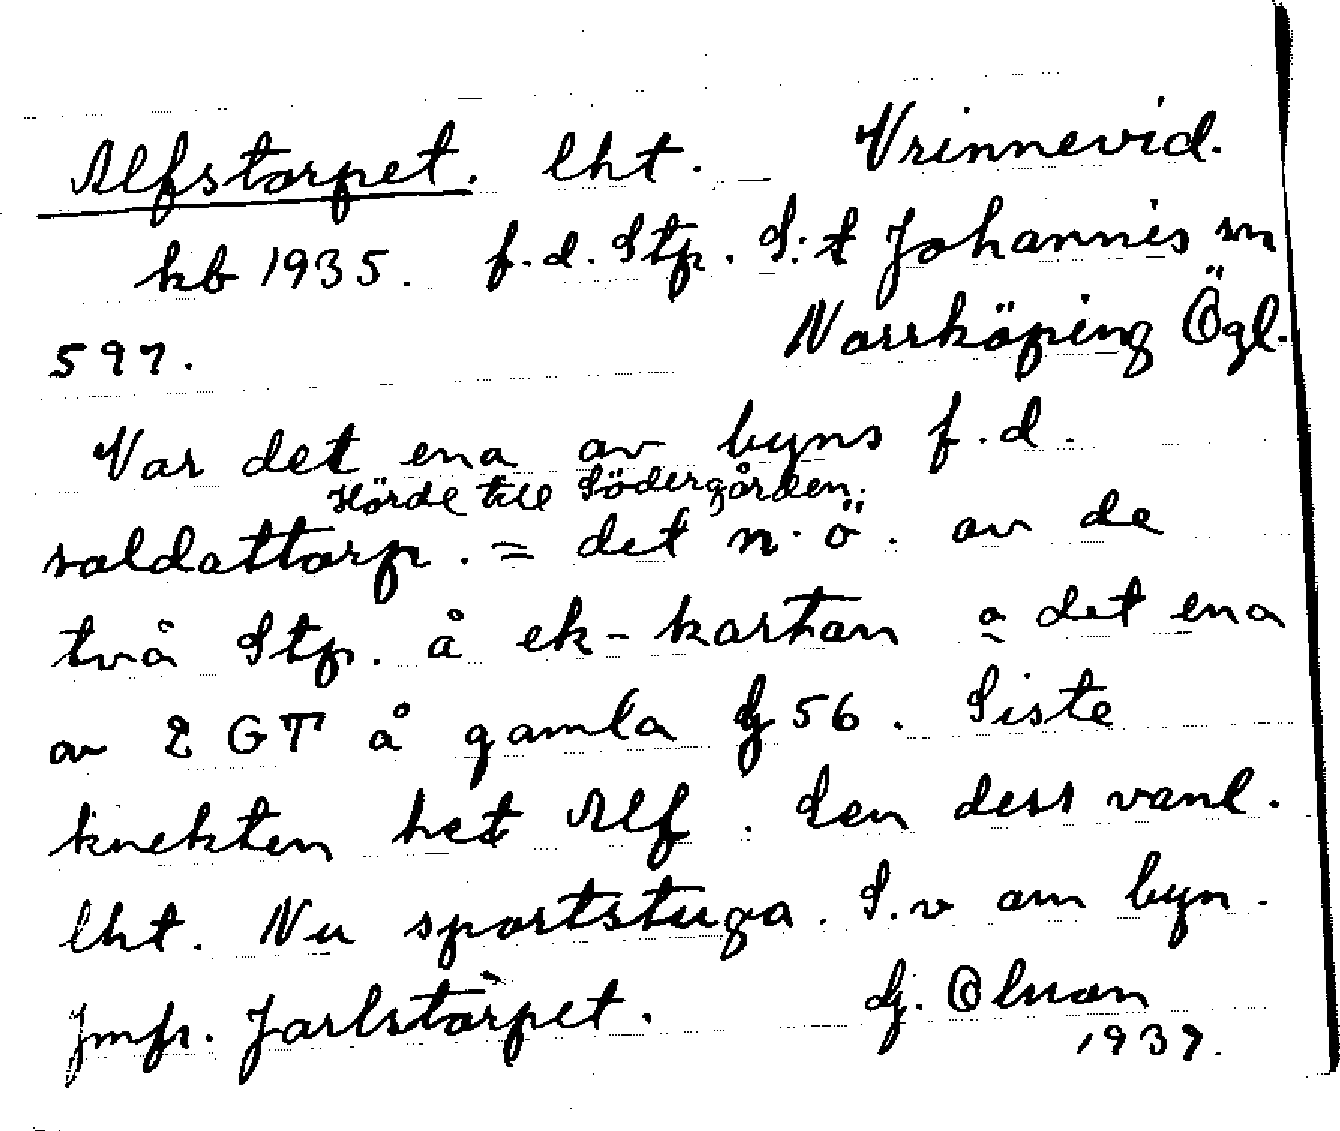 Alfstorpet. lht. Vrinnevid.
kb 1935. f.d. Stp. S:t Johannis sn
597. Norrköping Ögl.
Var det ena av byns f.d.
Hörde till Södergården.
soldattorp. = det n.ö. av de
två Stp. å ek-kartan o det ena
av 2 GT å gamla G 56. Siste
knekten het Alf. Sen dess vanl.
lht. Nu sportstuga. S.v om byn.
Jmfr. Jarlstorpet. G. Olsson
1937.